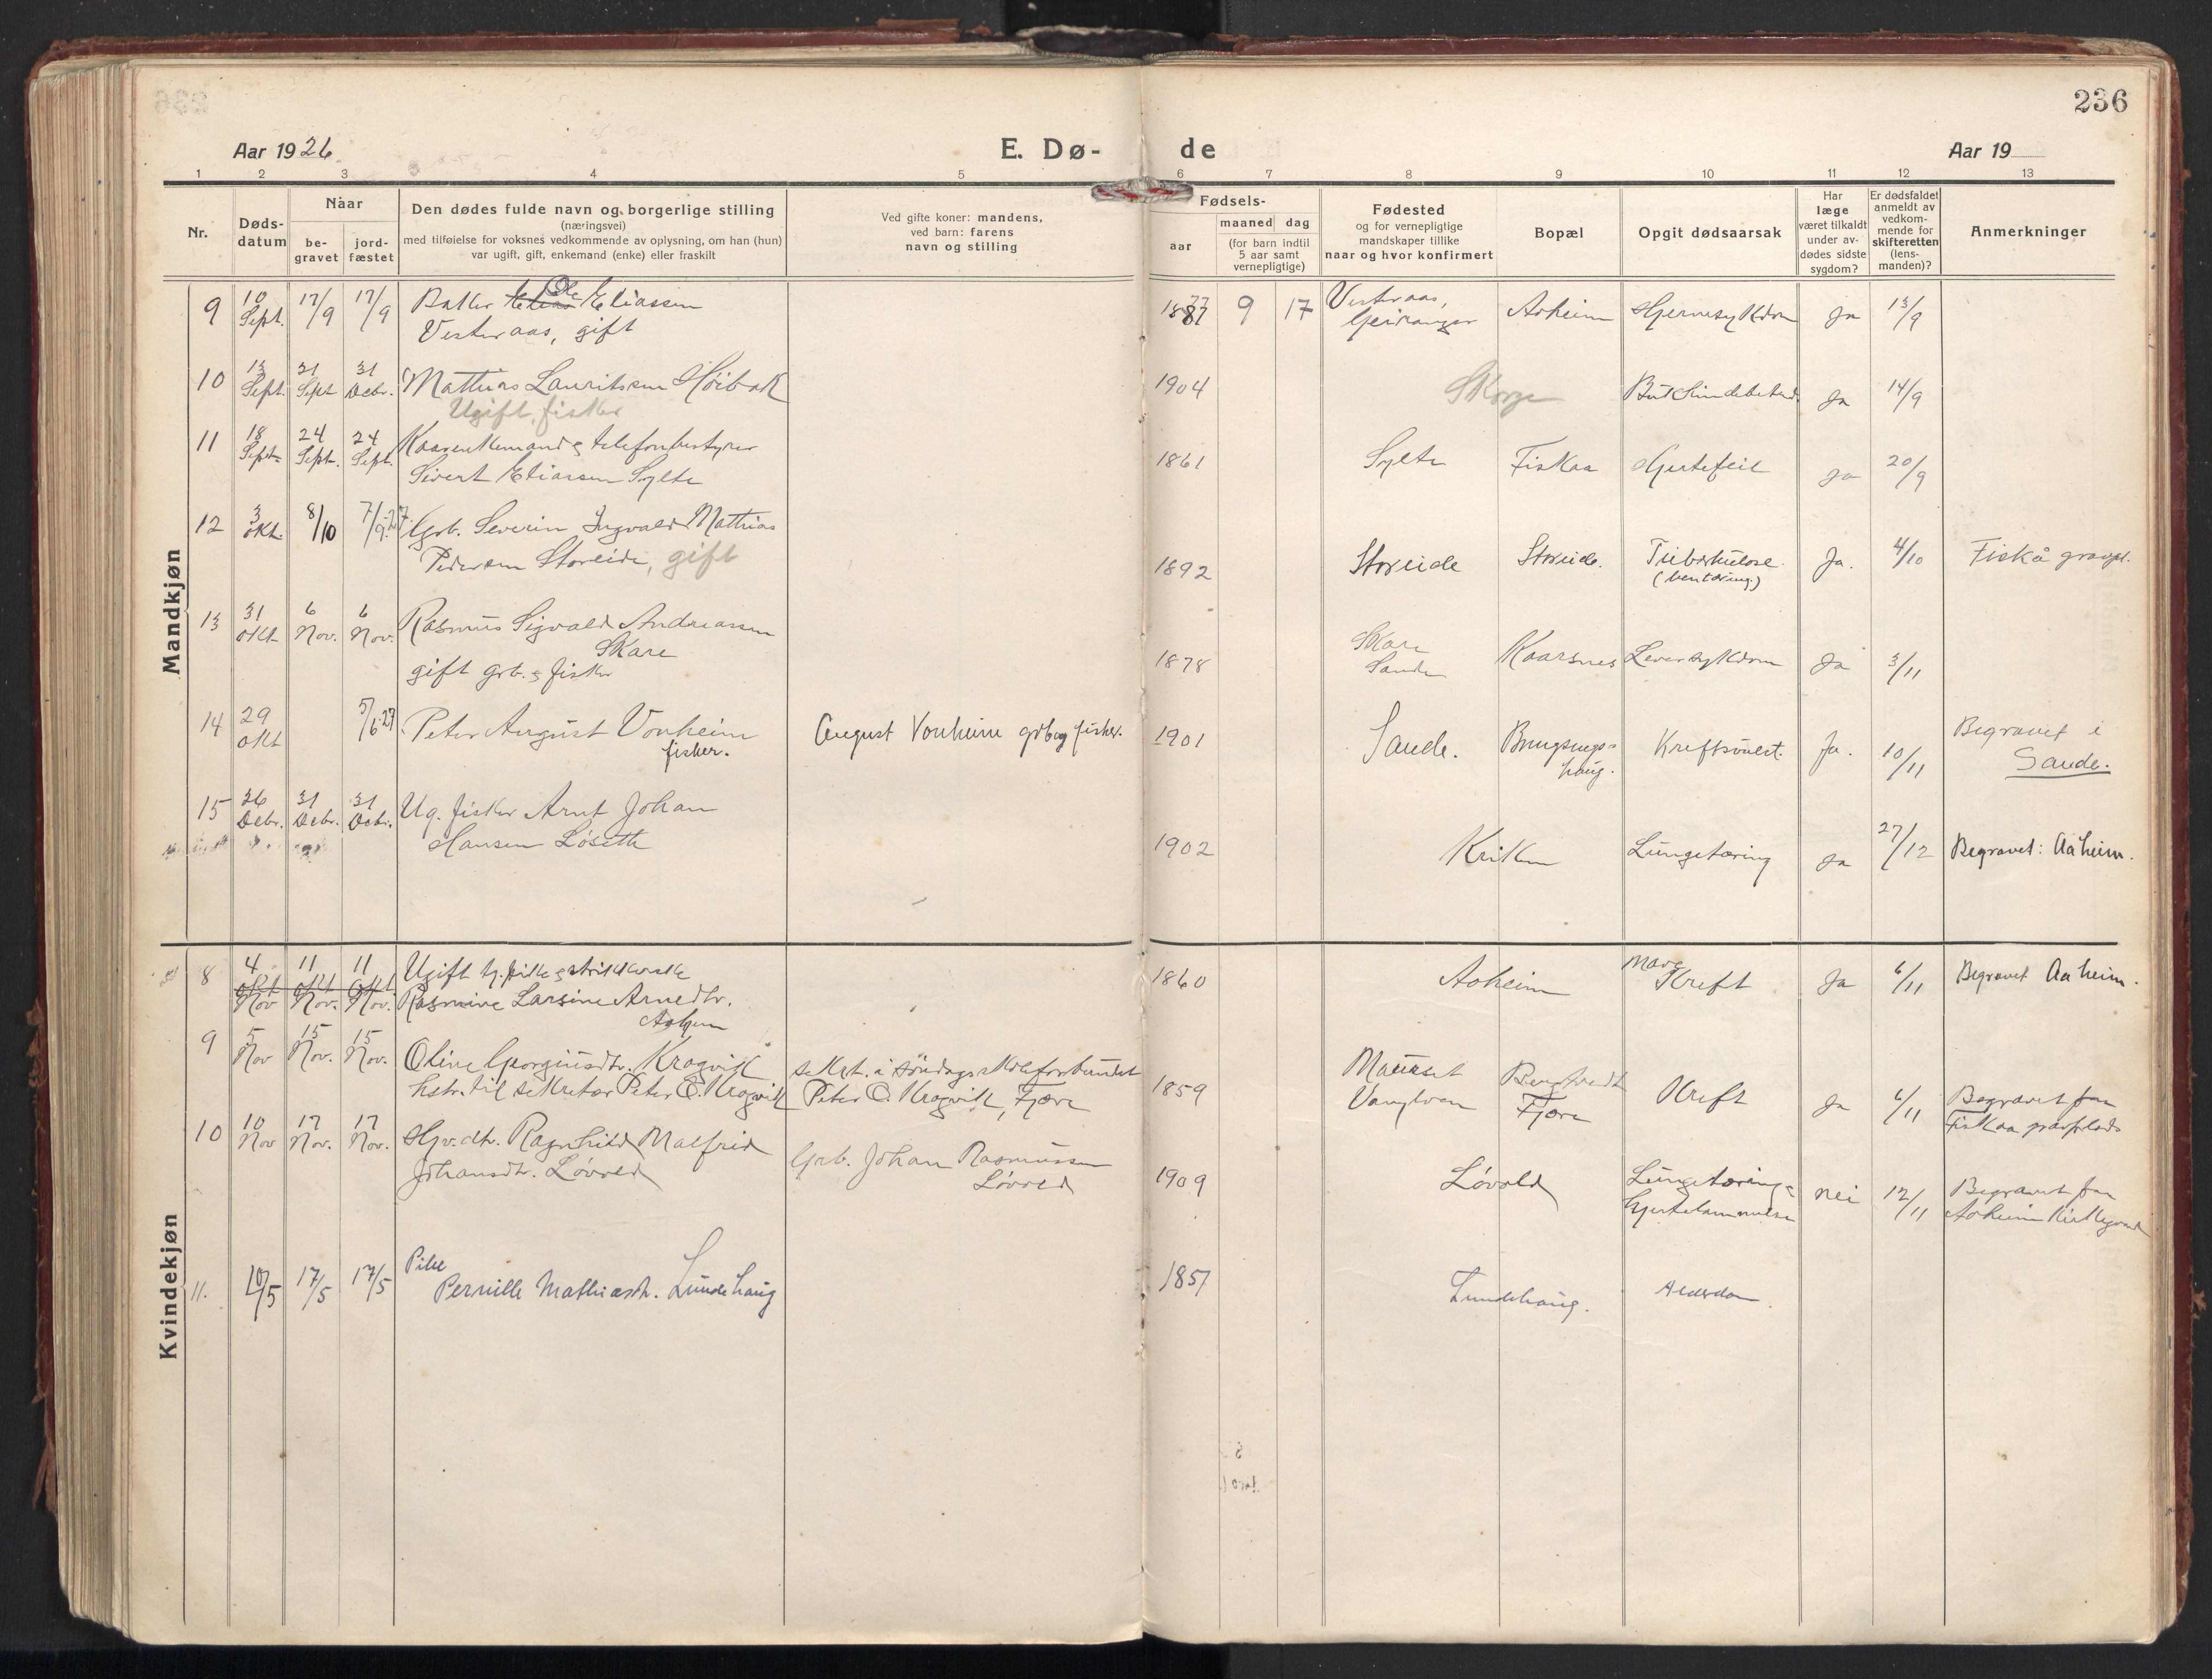 236
Aar 1926
E. Dø-
de
Aar 19
1 2 3 4 5 6 7 8 9 10 11 12 13
Nr.
Døds-
datum
Naar
be-
gravet
jord-
fæstet
Den dødes fulde navn og borgerlige stilling
(næringsvei)
med tilføielse for voksnes vedkommende av oplysning, om han (hun)
var ugift, gift, enkemand (enke) eller fraskilt
Ved gifte koner: mandens,
ved barn: farens
navn og stilling
Fødsels-
aar
maaned dag
(for barn indtil
5 aar samt
vernepligtige)
Fødested
og for vernepligtige
mandskaper tillike
naar og hvor konfirmert
Bopæl
Opgit dødsaarsak
Har
læge
været tilkaldt
under av-
dødes sidste
sygdom?
Er dødsfaldet
anmeldt av
vedkom-
mende for
skifteretten
(lens-
manden)?
Anmerkninger
Mandkjøn
9 10 Sept. 17/9 17/9 Ole Eliassen
Vesteraas, gift
1877 9 17 Vesteraas,
Geiranger Aaheim Hjernesykdom Ja 13/9
10 13 Sept. 21 Sept 31 Debr. Mathias Lauritsen Høibak
Ugift, fisker
1904 Skorge Ja 14/9
11 18 Sept. 24 Sept. 24 Sept. telefonbestyrer
Sivert Eliassen Sylte
1861 Sylte Fiskaa Hjertefeil ja 20/9
12 3 Okt. 8/10 7/9.27 Grb. Severin Ingvald Mathias
Pedersen Storeide, gift
1892 Storeide Storeide. Tuberkulose.
(bentæring) Ja. 4/10 Fiskå gravpl.
13 31 Okt 6 Nov. 6 Nov. Rasmus Sigvald Andreassen
Skare
gift grb. & fisker
1878 Skare
Sande Kaarsnes Leversykdom Ja 3/11
14 29 Okt 5/6 27 Peter August Vonheim
fisker.
August Vonheim grb og fisker.
1901 Sande. Kreftsvulst. Ja. 10/11 Begravet i
Sande.
15 26 Debr. 31 Debr. 31 Debr. Ug. fisker Arnt Johan
Hansen Løseth
1902 Kriken Lungetæring Ja 27/12 Begravet: Aaheim.
Kvindekjøn
8 4 Okt Nov 11 Okt Nov. 11 Okt Nov. Ugift tj. pike & strikkerske
Rasmine Larsine Arnedtr.
Aaheim
1860 Aaheim Mave
Kreft Ja 6/11 Begravet Aaheim.
9 5 Nov 15 Nov. 15 Nov. Oline Georginusdtr. Kragvik
hstr. til sekretær Peter O. Kragvik
sekret. i søndagsskoleforbundet
Peter O. Kragvik, Fjære
1859 Maurset
Vanylven
Fjære Kreft Ja 6/11 Begravet paa
Fiskaa gravplads
10 10 Nov 17 Nov. 17 Nov. Gjv. dtr. Ragnhild Malfrid
Johansdtr. Løvold
Grb. Johan Rasmussen
Løvold
1909 Løvold Lungetæring &
Hjertelammelse nei 12/11 Begravet paa
Aaheim Kirkegaard
11. 10/5 17/5 17/5 Pike
Pernille Mathiasdtr. Lundehaug
1857 Lundehaug. Alderdom.